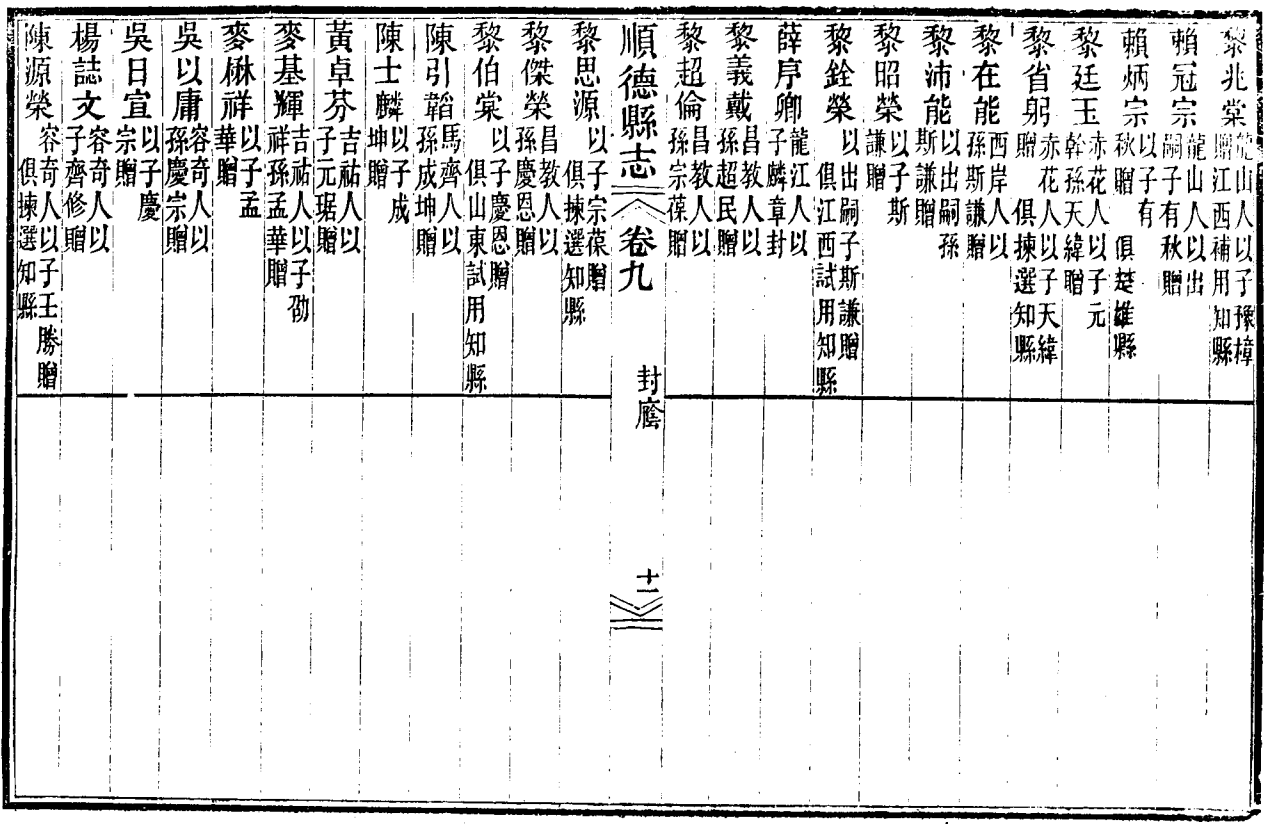 黎兆棠龍山人以子豫樟贈江西補用知縣
賴冠宗龍山人以出嗣子有秋贈
賴炳宗以子有秋贈 俱楚雄縣
黎廷玉赤花人以子元幹孫天緯贈
黎省躬赤花人以子天緯贈 俱揀選知縣
黎在能西岸人以孫斯謙贈
黎沛能以出嗣孫斯謙贈
黎昭榮以子斯謙贈
黎銓榮以出嗣子斯謙贈俱江西試用知縣
薛序卿龍江人以子麟章封
黎義戴昌教人以孫超民贈
黎超倫昌教人以孫宗葆贈
順德縣志 卷九 封廕 十一
黎思源以子宗葆贈俱揀選知縣
黎傑榮昌教人以孫慶恩贈
黎伯棠以子慶恩贈俱山東試用知縣
陳引韜馬齊人以孫成坤贈
陳士麟以子成坤贈
黃卓芬吉祐人以子元琚贈
麥基輝吉祐人以子劭祥孫孟華贈
麥楙祥以子孟華贈
吳以庸容奇人以孫慶宗贈
吳日宣以子慶宗贈
楊誌文容奇人以子齊修贈
陳源榮容奇人以子壬勝贈俱揀選知縣